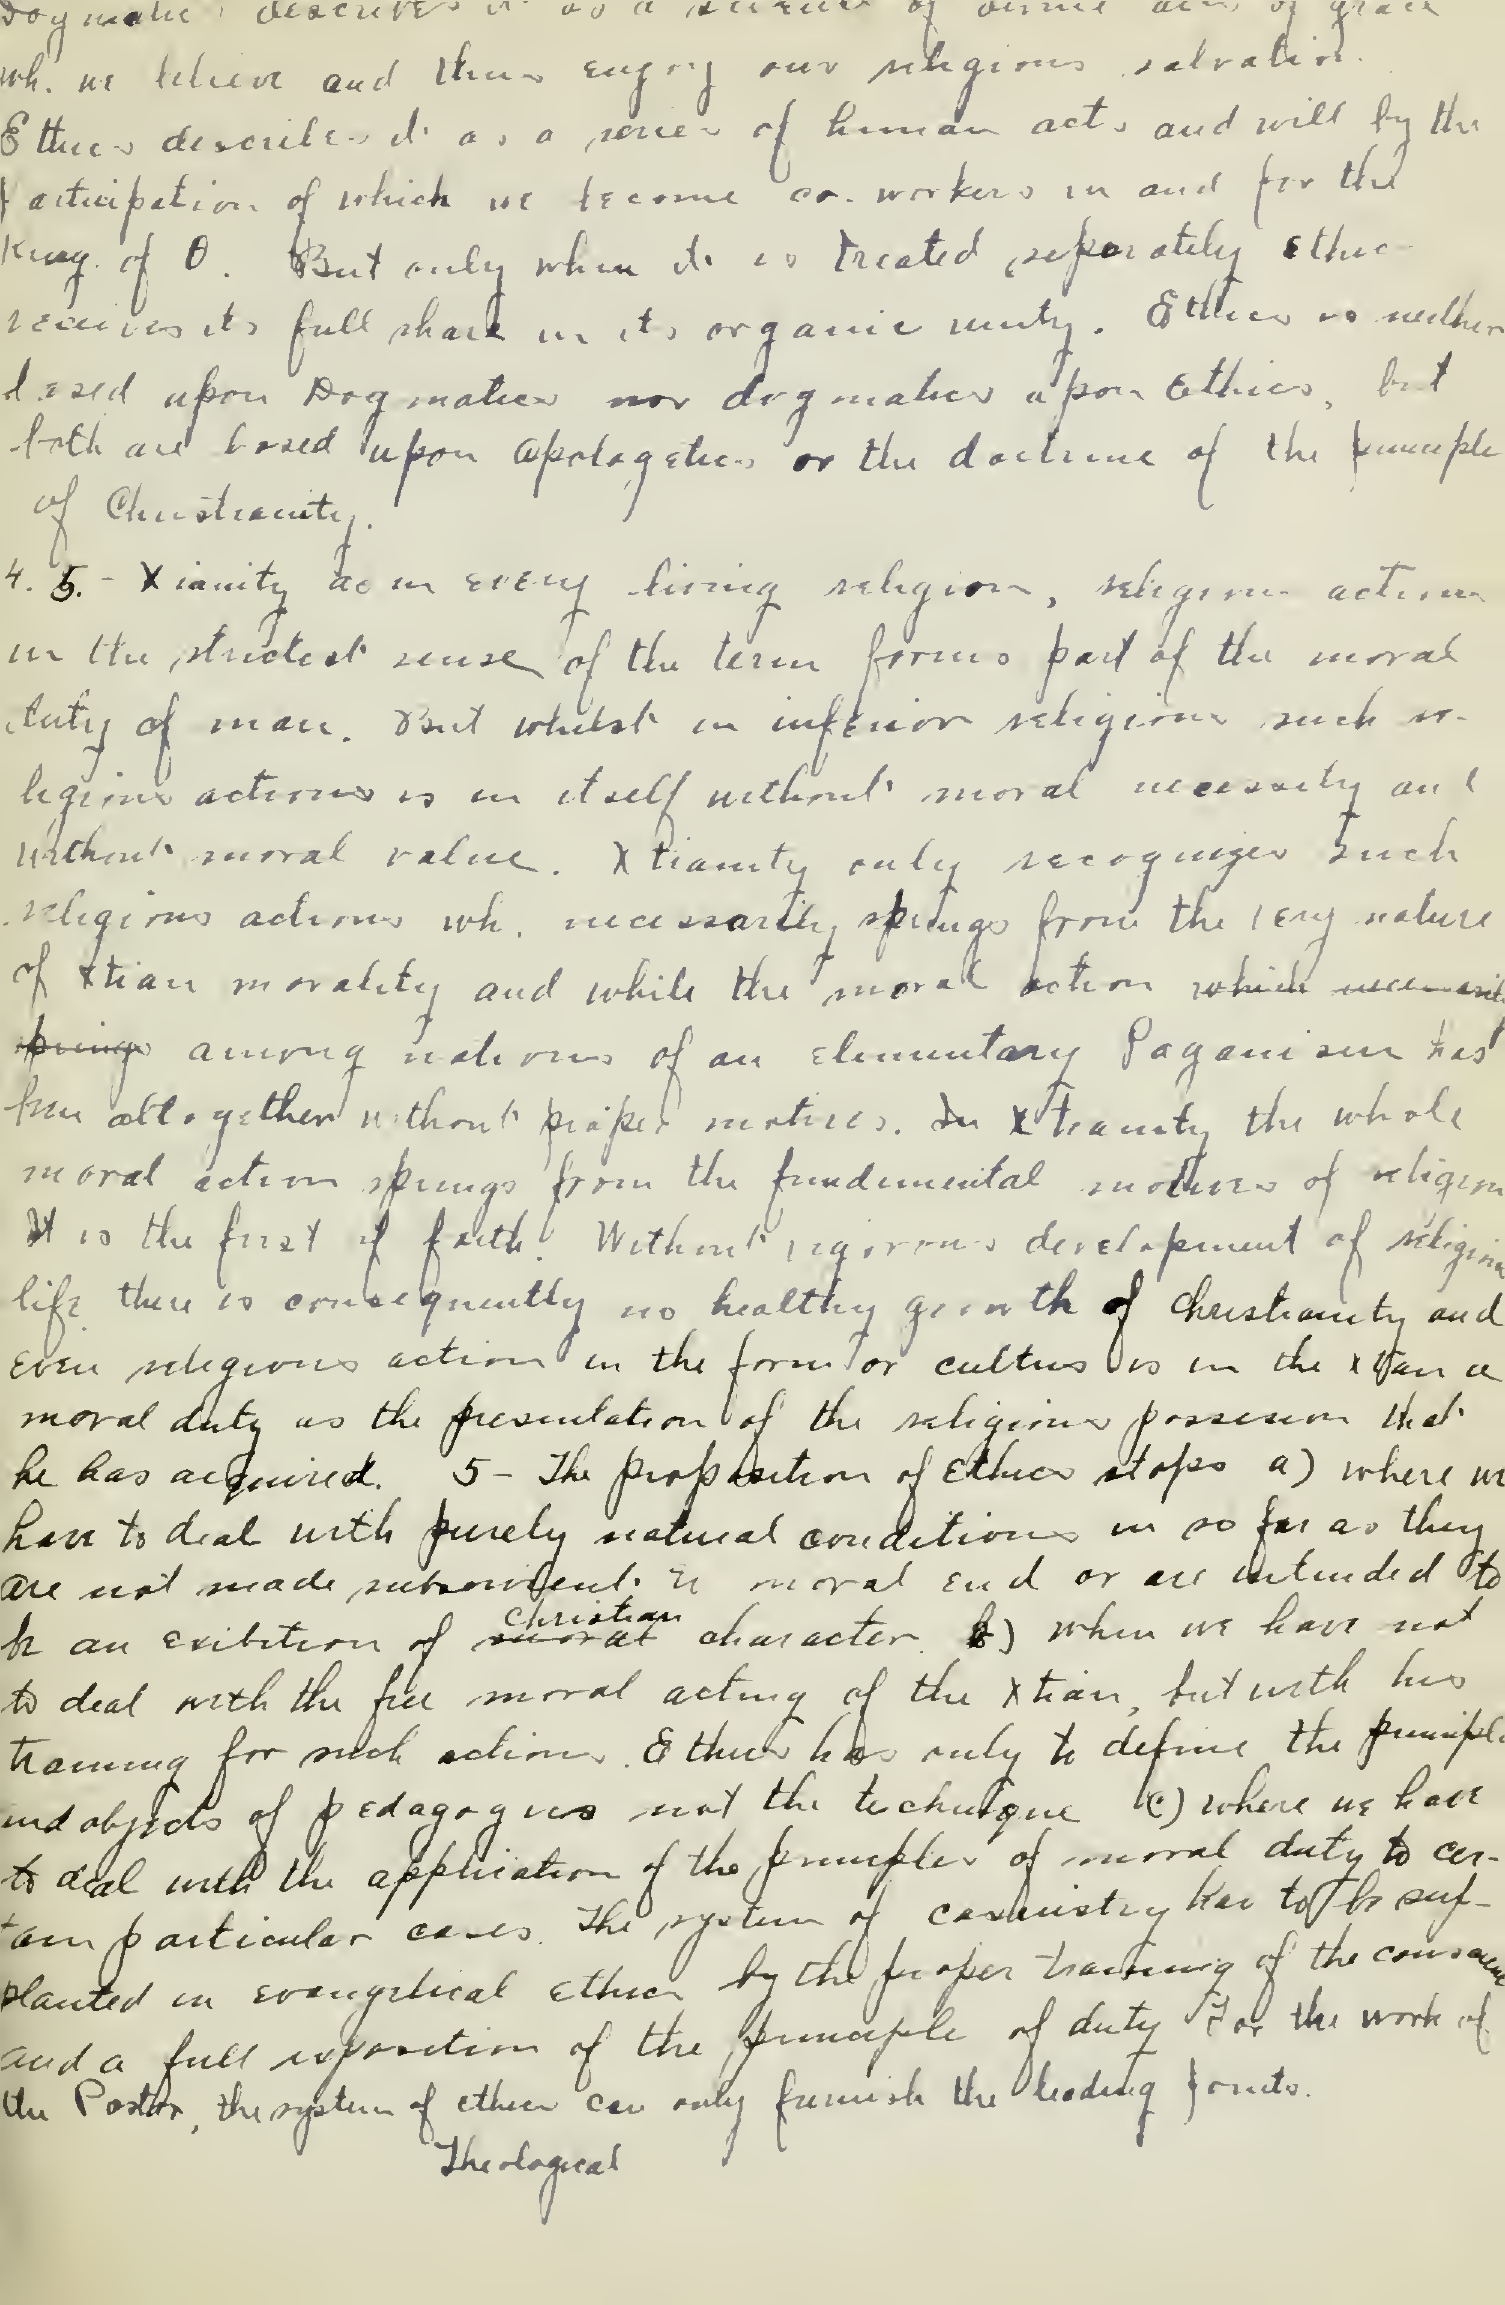 Dogmatics describes it as a series of divine acts of grace
wh. we believe and thus enjoy our religious salvation.
Ethics describes it as a series of human acts and will by the
participation of which we become co-workers in and for the
King. of θ. But only when it is treated separately Ethics
receives its full share in its organic unity. Ethics is neither
based upon Dogmatics nor dogmatics upon Ethics, but
both are based upon Apologetics or the doctrine of the principle
of Christianity.
4. 5. - Xianity as in every living religion, religious actions
in the strictest sense of the term forms part of the moral
duty of man. But whilst in inferior religions such re-
ligious actions is in itself without moral necessity and
without moral value. Xtianity only recognizes such
religious actions wh. necessarily springs from the very nature
of Xtian morality and while the moral action which necessarily
springs among nations of an elementary Paganism has
been altogether without proper motives. In Xtianity the whole
moral action springs from the fundemental motives of religion
It is the first of faith. Without vigorous development of religious
life there is consequently no healthy growth of Christianity and
even religious action in the form or cultus is in the Xtian a
moral duty as the presentation of the religious possesion that
he has acquired. 5 - The proposition of Ethics stops a) where we
have to deal with purely natural conditions in so far as they
are not made subservient to moral end or are intended to
be an exibition of moral Christian character. b) when we have not
to deal with the free moral acting of the Xtian, but with his
training for such actions. Ethics has only to define the principle
and objects of pedagogues not the technique c) where we have
to deal with the application of the principles of moral duty to cer-
tain particular cases. The system of casuistry has to be sup-
planted in evangelical ethics by the proper training of the conscience
and a full exposition of the principle of duty For the work of
the Pastor, the system of ethics can only furnish the leading points.
Theological